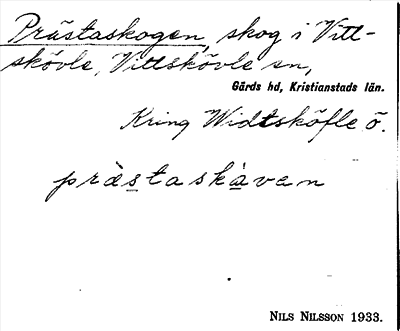 Prästaskogen, skog i Vitt-
skövle, Vittskövle sn,
Gärds hd, Kristianstads län.
Kring Widtsköfle ö.
prästaskàven
Nils Nilsson 1933.